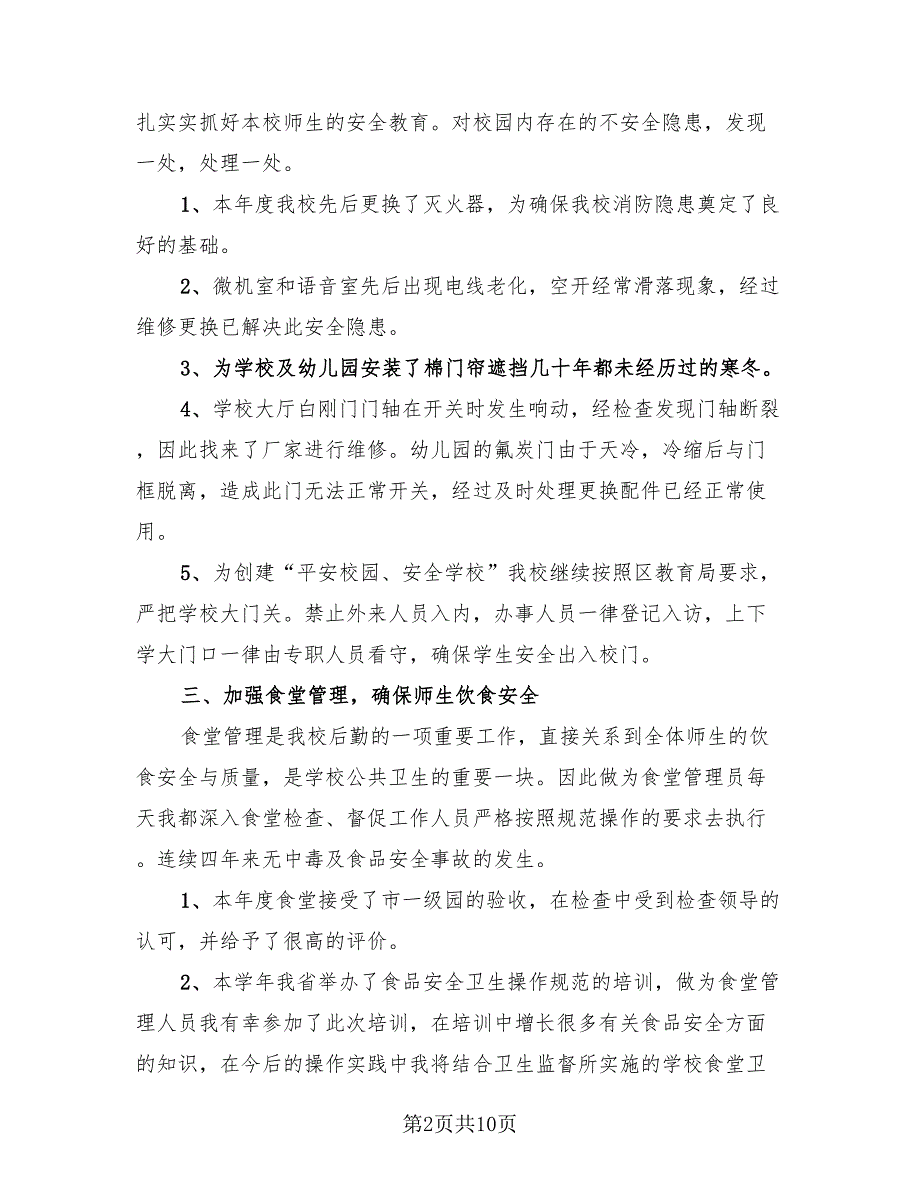 扎实实抓好本校师生的安全教育。对校园内存在的不安全隐患，发现
一处，处理一处。
1、本年度我校先后更换了灭火器，为确保我校消防隐患奠定了良
好的基础。
2、微机室和语音室先后出现电线老化，空开经常滑落现象，经过
维修更换已解决此安全隐患。
3、为学校及幼儿园安装了棉门帘遮挡几十年都未经历过的寒冬。
4、学校大厅白刚门门轴在开关时发生响动，经检查发现门轴断裂
，因此找来了厂家进行维修。幼儿园的氟炭门由于天冷，冷缩后与门
框脱离，造成此门无法正常开关，经过及时处理更换配件已经正常使
用。
5、为创建“平安校园、安全学校”我校继续按照区教育局要求，
严把学校大门关。禁止外来人员入内，办事人员一律登记入访，上下
学大门口一律由专职人员看守，确保学生安全出入校门。
三、加强食堂管理，确保师生饮食安全
食堂管理是我校后勤的一项重要工作，直接关系到全体师生的饮
食安全与质量，是学校公共卫生的重要一块。因此做为食堂管理员每
天我都深入食堂检查、督促工作人员严格按照规范操作的要求去执行
。连续四年来无中毒及食品安全事故的发生。
1、本年度食堂接受了市一级园的验收，在检查中受到检查领导的
认可，并给予了很高的评价。
2、本学年我省举办了食品安全卫生操作规范的培训，做为食堂管
理人员我有幸参加了此次培训，在培训中增长很多有关食品安全方面
的知识，在今后的操作实践中我将结合卫生监督所实施的学校食堂卫
第2页共10页